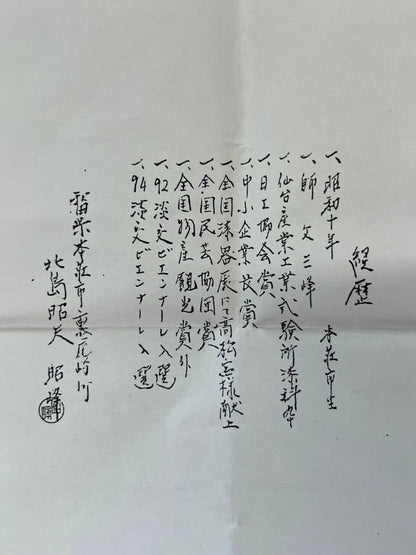 経歴
一、昭和十年 本荘市生
一、師 父 三峰
一、仙台産業工業試験所漆科卒
一、日工協会賞
一、中小企業長賞
一、全国漆器展にて高松宮様献上
一、全国民芸協団賞
一、全国物産観光賞外
一、92 淡交ビエンナーレ入選
一、94 淡交ビエンナーレ入選
秋田県本荘市裏尾崎町
北島昭夫 昭峰